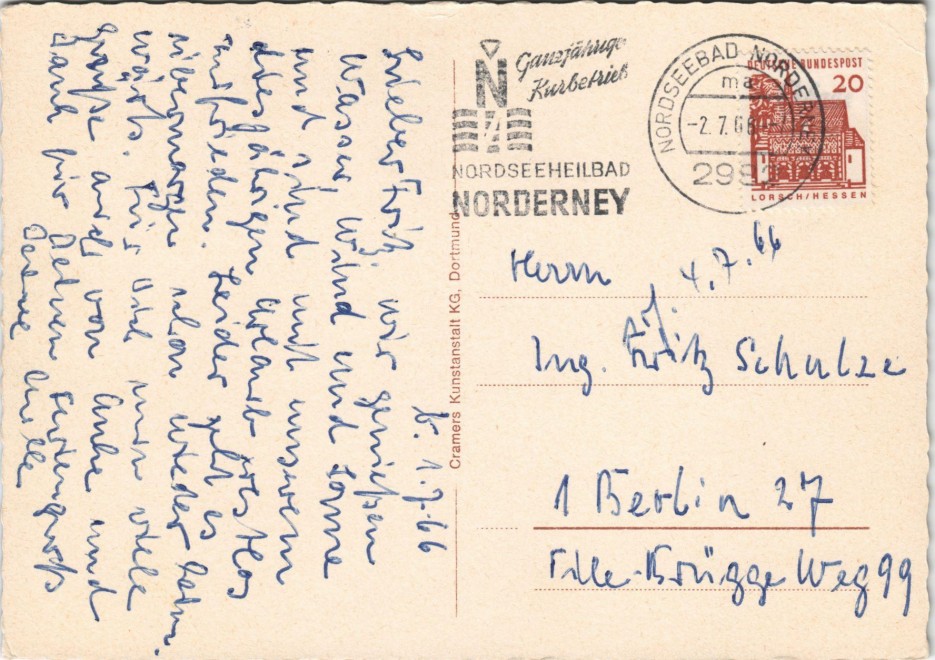 b. 1.7.66
Lieber Fritz, wir genießen
Wasser, Wind und Sonne
und sind mit unserem
diesjährigen Urlaub restlos
zufrieden. Leider geht es
übermorgen schon wieder heim-
wärts. Für Dich nun viele
Grüße auch von Anke und
Dank für Deinen Feriengruß
Deine
Cramers Kunstanstalt KG, Dortmund
Ganzjährige
Kurbetrieb
N
NORDSEEHEILBAD
NORDERNEY
NORDSEEBAD NORDERNEY
ma
-2.7.66
DEUTSCHE BUNDESPOST
20
LORSCH/HESSEN
Herrn
4.7.66
Ing. Fritz Schulze
1 Berlin 27
Tile-Brügge Weg 99